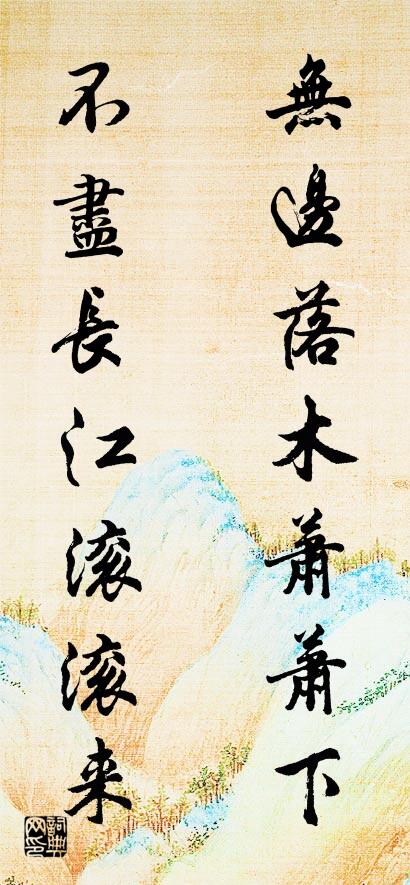 無邊落木蕭蕭下
不盡長江滚滚来
詞典
网印